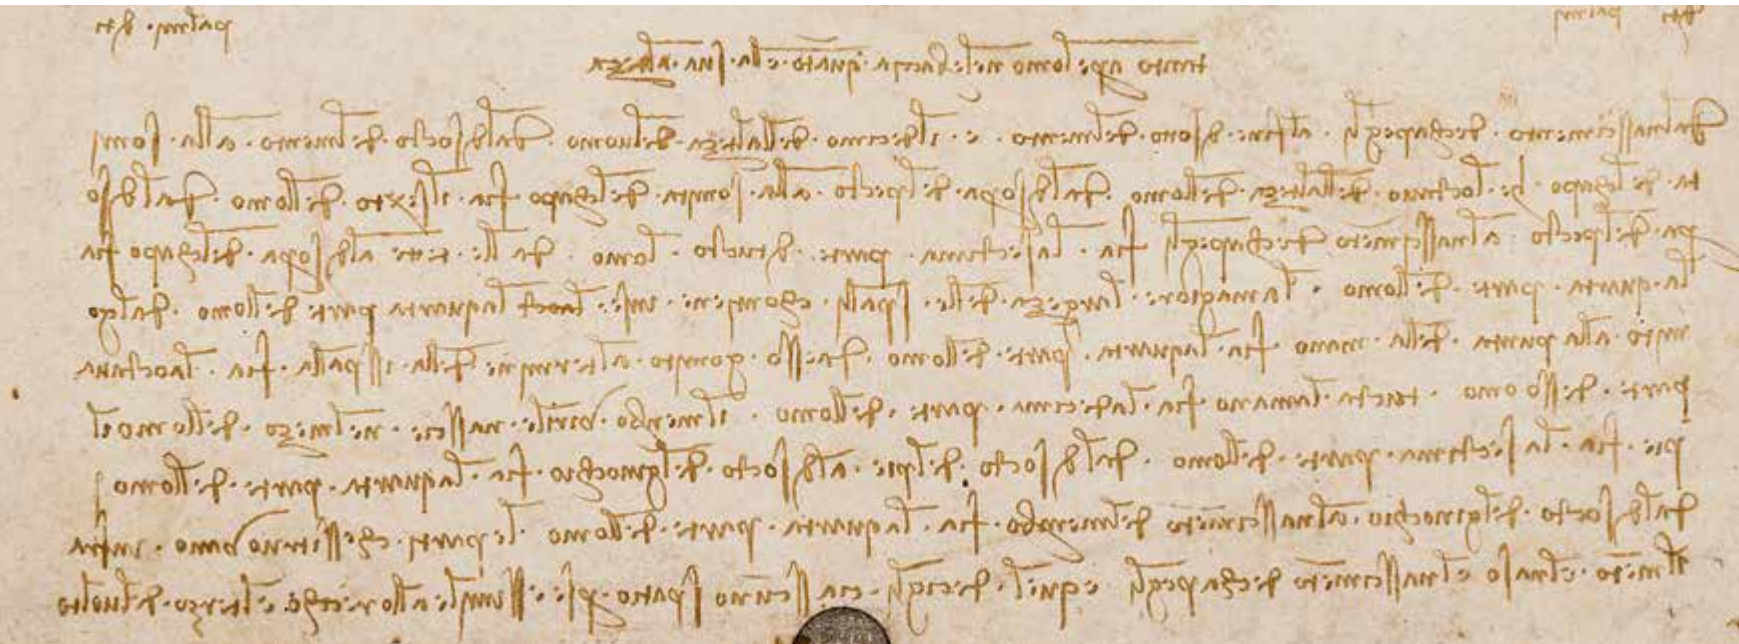 djti palmj
palmj · djti
tanto apre lomo nelle braccia quāto ella sua alteza
dal nasscimento de chapegli al fine di socto del mento e il decimo dellalteza delluomo dal di socto del mento alla somj
ta del chapo he loctavo dellalteza dellomo dal di sopra del pecto alla somjta del chapo fia il sexto dellomo dal di so
pra del pecto al nasscimēto de chapegli fia la settima parte di tucto lomo dalle tette al di sopra del chapo fia
la quarta parte dellomo la magiore largheza delle spalli chontiene in se la oct la quarta parte dellomo dal go
mito alla punta della mano fia la quarta parte dellomo da esso gomito al termine della isspalla fia la octava
parte desso omo tucta la mano fia la decima parte dellomo il membro virile nasscie nel mezo dellomo il
pie fia la settima parte dellomo dal di socto del pie al di socto del ginochio fia la quarta parte dellomo
dal di socto del ginochio al nasscimēto del membro fia la quarta parte dellomo le parti che si truovano infra
il mēto el naso el nasscimēto de chapegli e quel de cigli ciasscuno spatio perse essimile allorecchio el terzo del volto